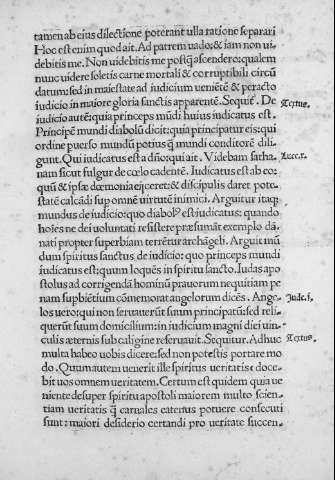 tamen ab eius dilectione poterant ulla ratione separari
Hoc est enim quod ait. Ad patrem uado: & iam non ui-
debitis me. Non uidebitis me postq̃ ascendero: qualem
nunc uidere soletis carne mortali & corruptibili circũ
datum: sed in maiestate ad iudicium ueniẽte & peracto
iudicio in maiore gloria sanctis apparentẽ. Sequit᷑. De
iudicio autẽ: quia princeps mũdi huius iudicatus est.
Principẽ mundi diabolũ dicit: quia principatur eis: qui
ordine puerso mundũ potius q̃ mundi conditorẽ dili-
gunt. Qui iudicatus est a dño: qui ait. Videbam satha-
nam sicut fulgur de cœlo cadentẽ. Iudicatus est ab eo:
quũ & ipsæ dæmonia eijceret: & discipulis daret pote-
statẽ calcãdi sup omnẽ uirtutẽ inimici. Arguitur itaq;
mundus de iudicio: quo diabolꝰ est iudicatus: quando
hoĩes ne dei uoluntati resistere præsumãt exemplo dã-
nati propter superbiam terrẽtur archãgeli. Arguit mũ
dum spiritus sanctus de iudicio: quo princeps mundi
iudicatus est: quum loquẽs in spiritu sancto. Iudas apo
stolus ad corrigendã hominũ prauorum nequitiam pe
nam supbiẽtium cõmemorat angelorum dicẽs. Ange-
los uero: qui non seruauerũt suum principatũ: sed reli-
querũt suum domicilium: in iudicium magni diei uin-
culis æternis sub caligine reseruauit. Sequitur. Adhuc
multa habeo uobis dicere: sed non potestis portare mo
do. Quum autem uenerit ille spiritus ueritatis: doce-
bit uos omnem ueritatem. Certum est quidem quia ue
niente desuper spiritu apostoli maiorem multo scien-
tiam ueritatis q̃ carnales eatenus potuere consecuti
sunt: maiori desiderio certandi pro ueritate succen-
Textus.
Luce.x.
Jude.i.
Textus.